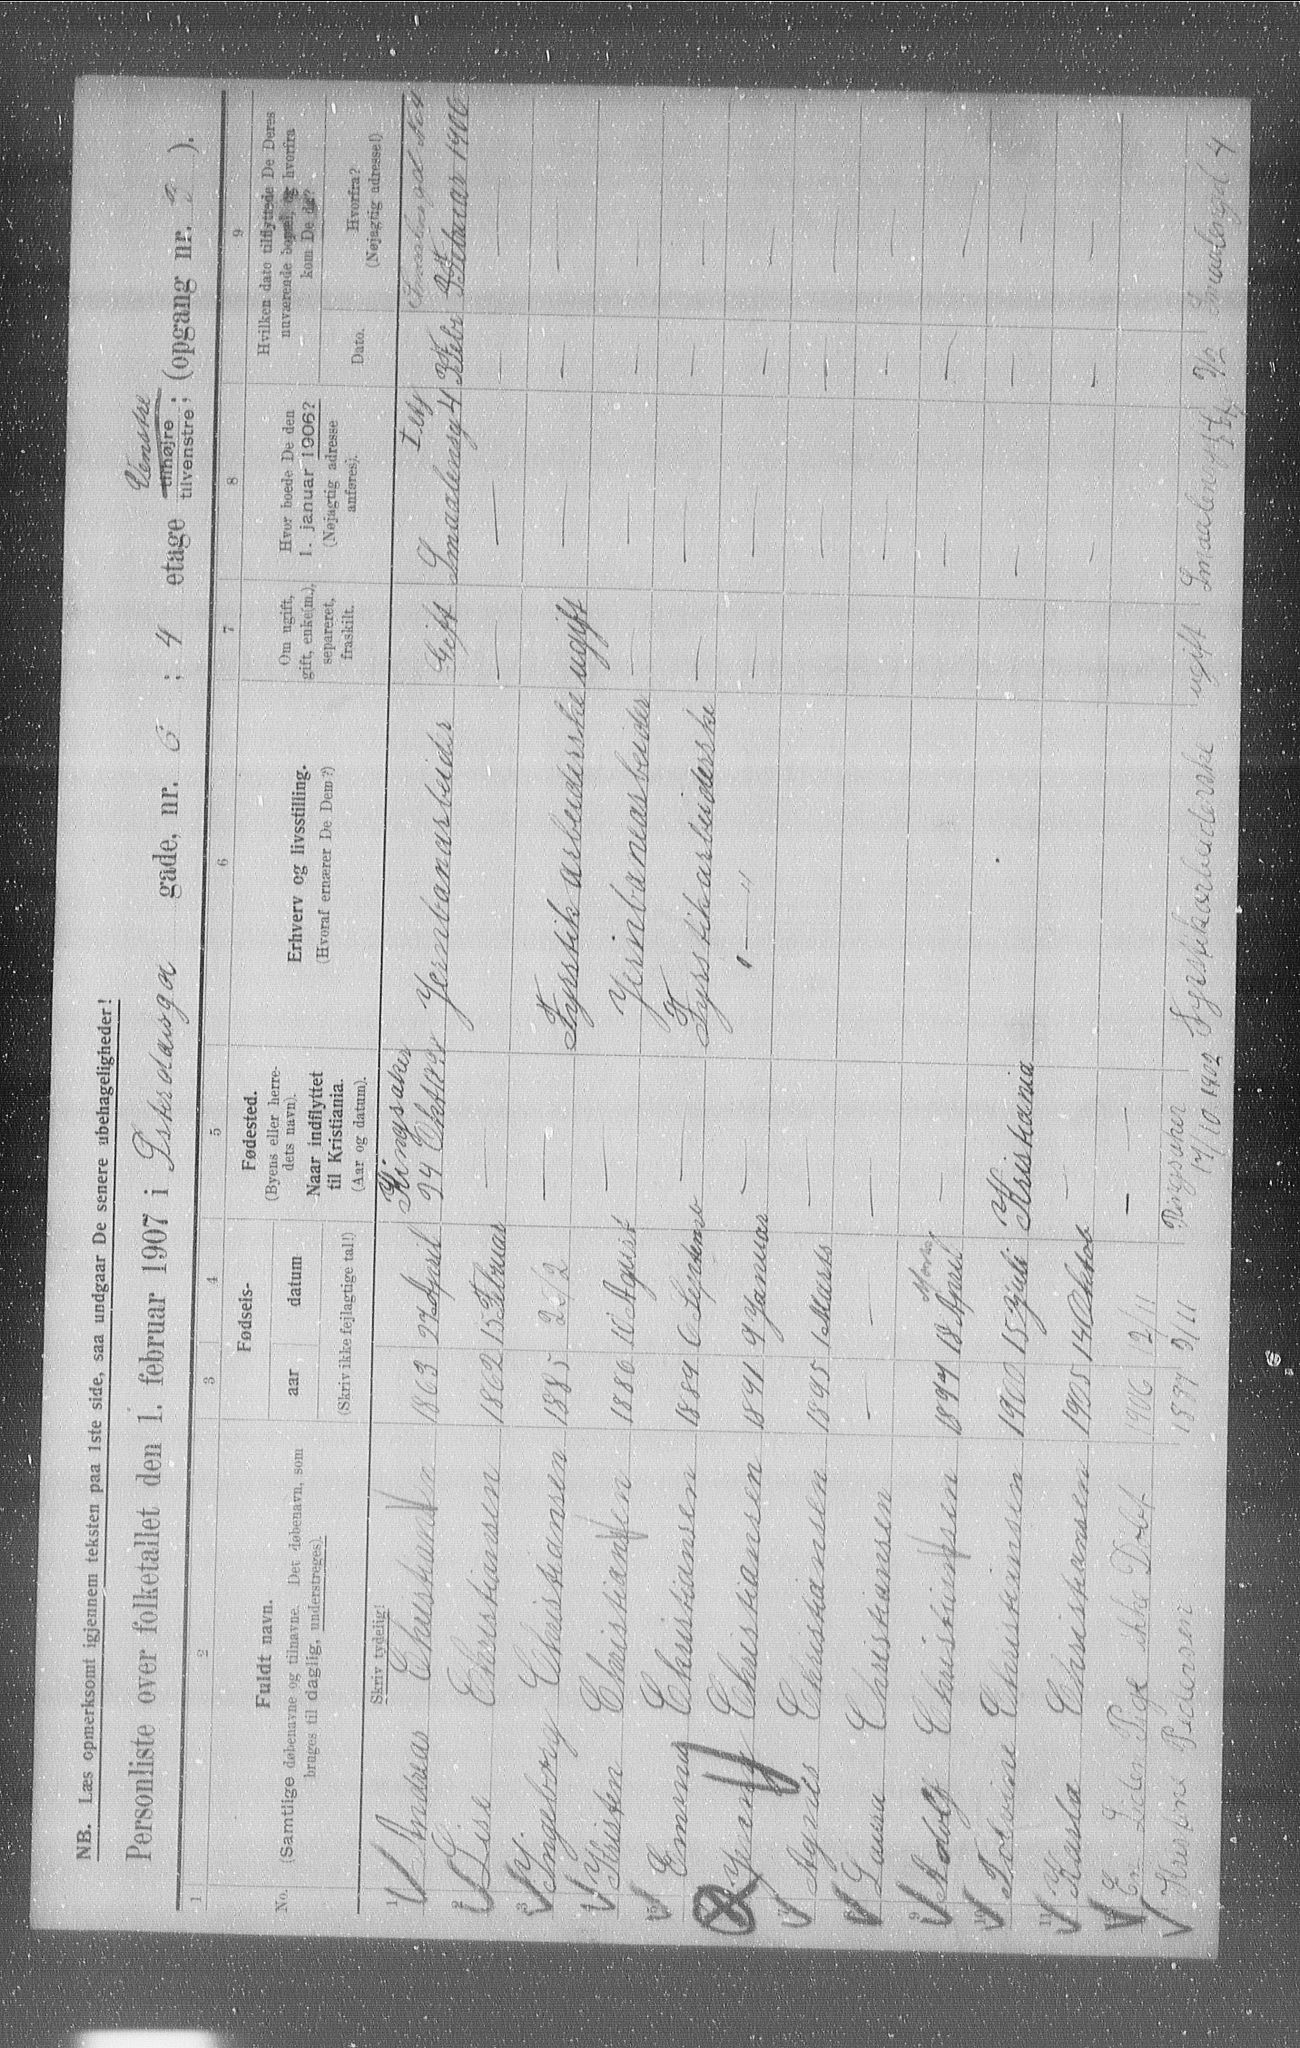 NB. Læs opmerksomt igjennem teksten paa 1ste side, saa undgaar De senere ubehageligheder!
Personliste over folketallet den 1. februar 1907 i Østerdalsga gade, nr. 6 ; 4 etage tilhøjre tilvenstre; (opgang nr. 2 ).
Venstre
1 2 3 4 5 6 7 8 9
No.
Fuldt navn.
(Samtlige døbenavne og tilnavne. Det døbenavn, som
bruges til daglig, understreges).
Skriv tydelig!
Fødsels-
aar datum
(Skriv ikke fejlagtige tal!)
Fødested.
(Byens eller herre-
dets navn).
Naar indflyttet
til Kristiania.
(Aar og datum).
Erhverv og livsstilling.
(Hvoraf ernærer De Dem?)
Om ugift,
gift, enke(m.),
separeret,
fraskilt.
Hvor boede De den
1. januar 1906?
(Nøjagtig adresse
anføres).
Hvilken dato tilflyttede De Deres
nuværende bopæl, og hvorfra
kom De da?
Dato.
Hvorfra?
(Nøjagtig adresse!)
Ringsaker
1 Andreas Christiansen 1863 24 April 24 Oktober Jernbanarbeider Gift Smaalensg 4 Februar 1906
2 Lise Christiansen 1862 15 Februar — — — — —
3 Ingeborg Christiansen 1885 25/2 — Fyrstikarbeiderske ugift — — —
4 Kristen Christiansen 1886 16 Agust — Jernbanearbeider — — — —
5 Emma Christiansen 1889 6 Septembr — Fyrstikarbeiderske — — — —
6 Jenny Christiansen 1891 9 Januar — — " — — — —
7 Agnes Christiansen 1895 1 Mars — — — —
8 Luisa Christiansen — — — — — —
9 Adolf Christiansen 1897 18 April — — — —
10 Tolvine Christiansen 1900 15 Juli Kristiania — — —
11 Karla Christiansen 1905 14 Oktob — — — —
12 En Liden Pige ikke Døbt 1906 12/11 —
Kristine Pedersen 1887 3/11 Ringsaker 17/10 1902 Fyrstikarbeiderske ugift Smaalensgt 4 Smaalensgt 4